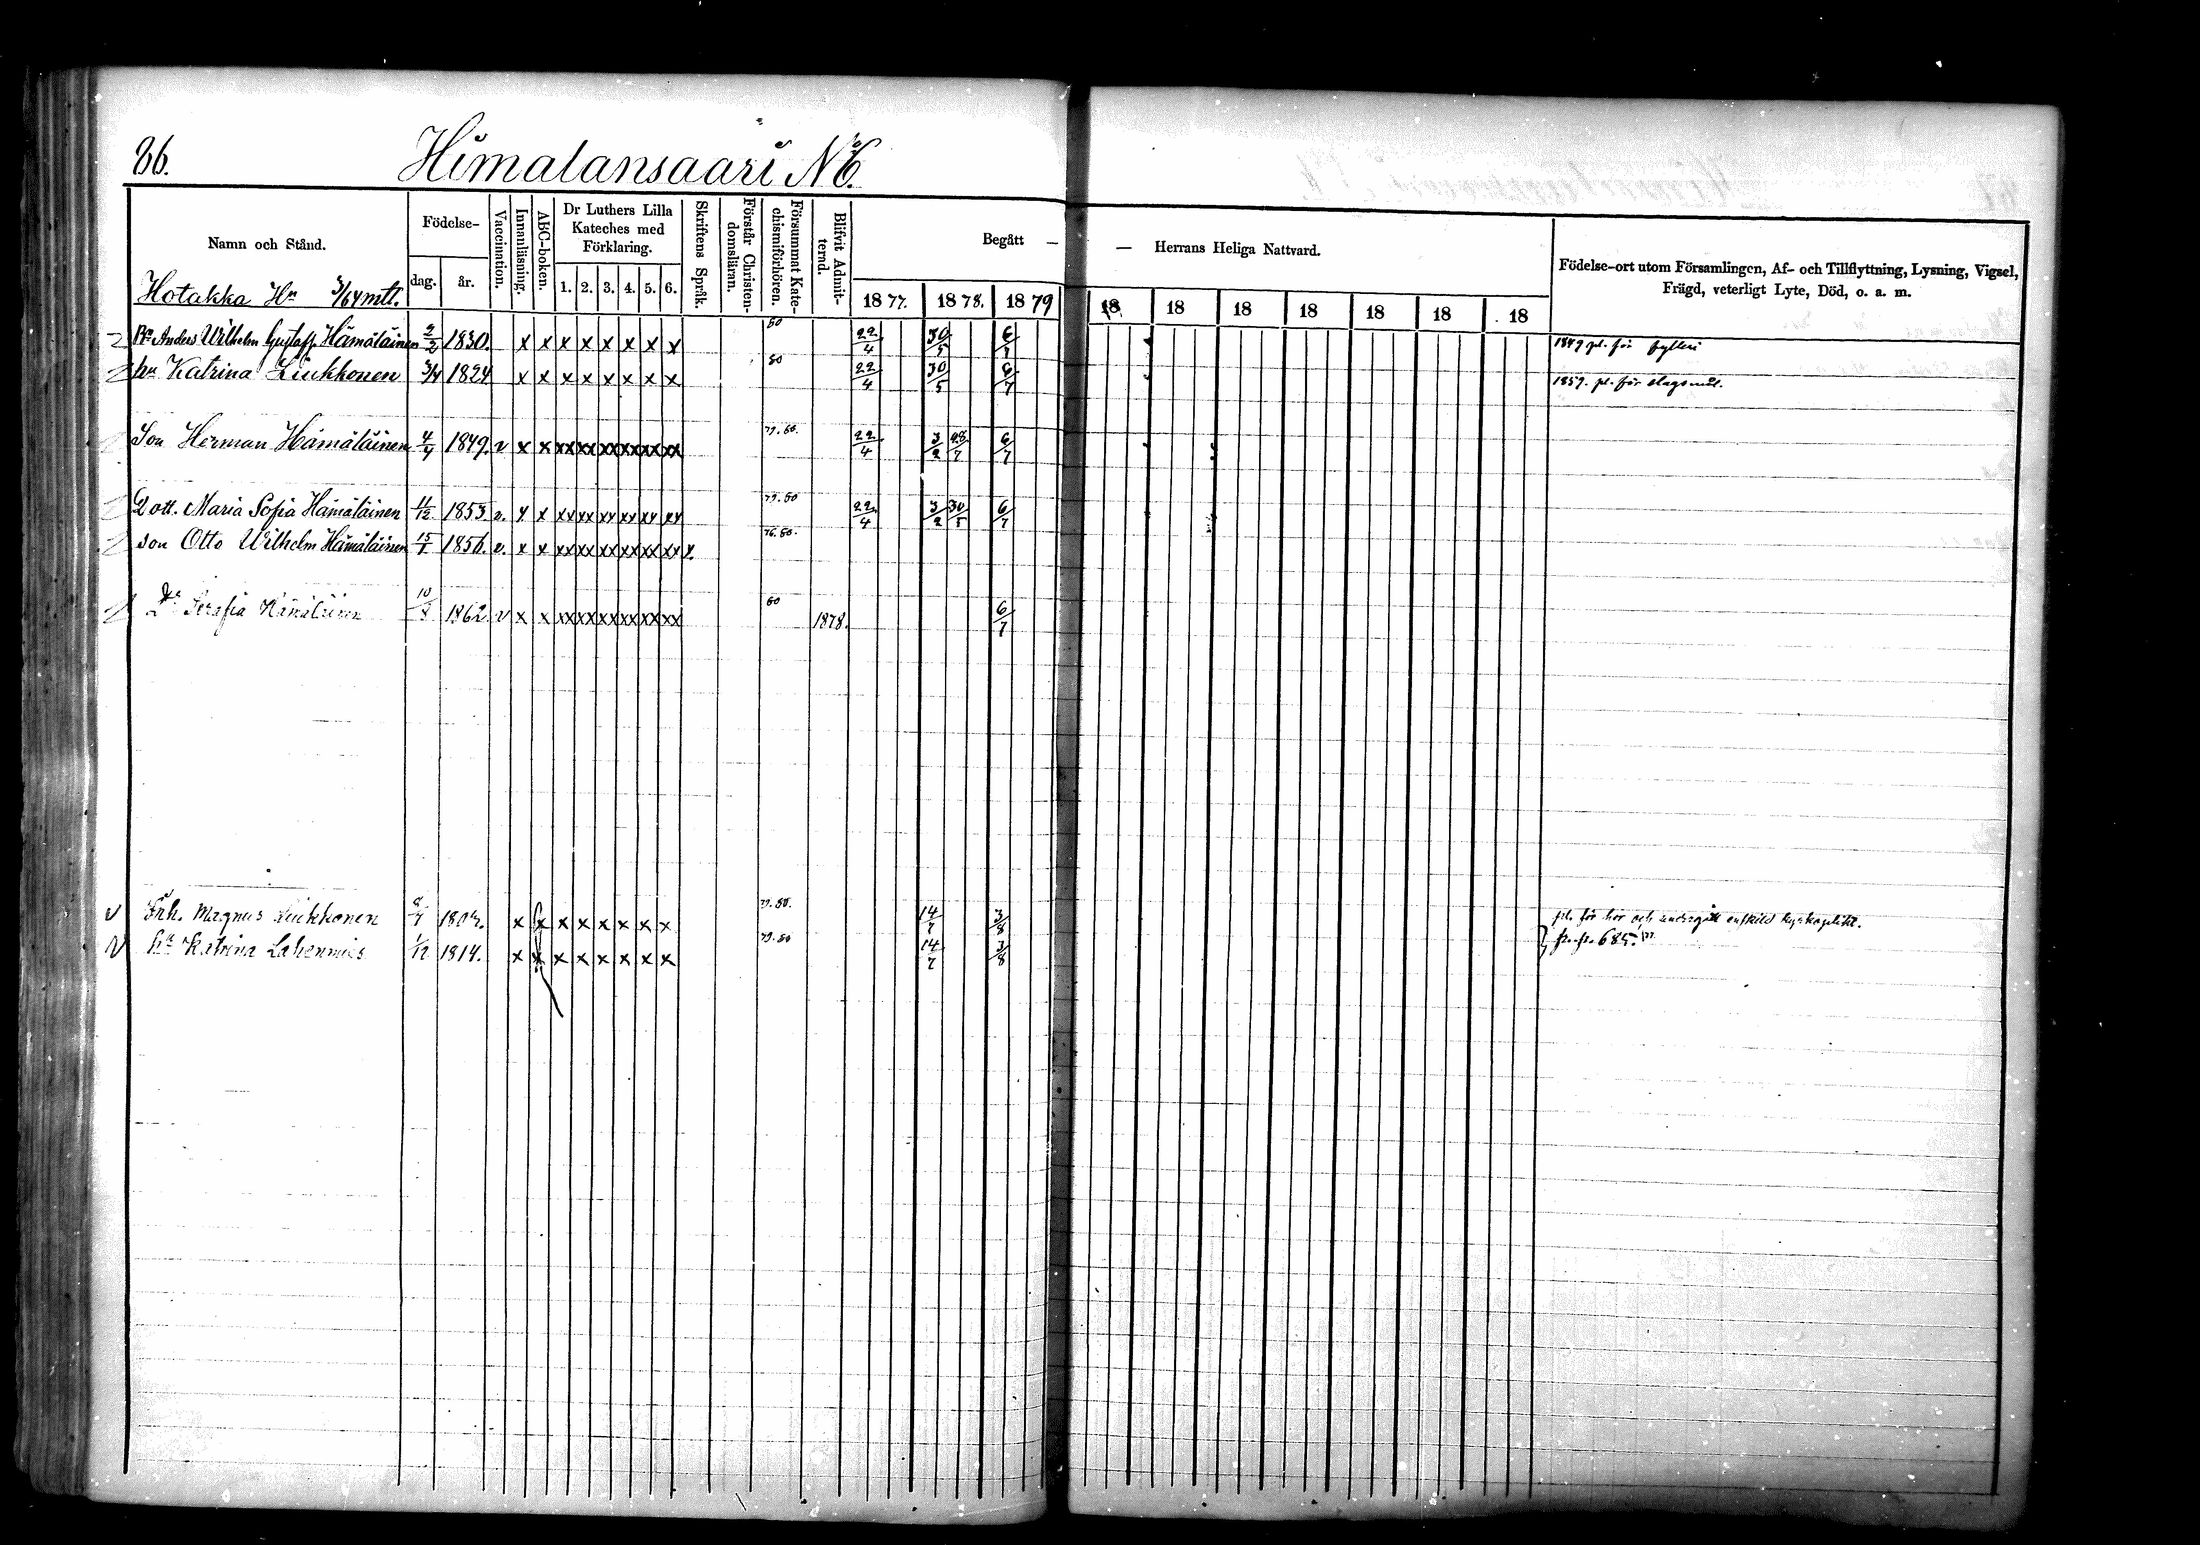 86.
Himalansaari No 6.
Namn och Stånd.
Födelse-
dag.
år.
Vaccination.
Innanläsning.
ABC-boken.
Dr Luthers Lilla
Kateches med
Förklaring.
1. 2. 3. 4. 5. 6.
Skriftens Språk.
Förstår Christen-
domsläran.
Försummat Kate-
chismiförhören.
Blifvit Admit-
terad.
Begått — — Herrans Heliga Nattvard.
1877. 1878. 1879 18 18 18 18 18 18 18
Födelse-ort utom Församlingen, Af- och Tillflyttning, Lysning, Vigsel,
Frägd, veterligt Lyte, Död, o. a. m.
Hotakka Hn 3/64 mtl.
Anders Wilhelm Gustaff Hämäläinen 2/2 1830. x x x x x x x x 80 22/4 30/5 1849 pl. för fylleri
hu Katrina Liukkonen 3/4 1824 x x x x x x x x 80 22/4 30/5 6/7 1859. pl. för slagsmål.
Son Herman Hämäläinen 4/4 1849. v x x xx xx xx xx xx xx 79.80. 22/4 3/2 28/7 6/7
Dott. Maria Sofia Hämäläinen 11/12 1853 v. x x xx xx xx xx xx xx 79.80 22/4 3/2 30/5 6/7
son Otto Wilhelm Hämäläinen 15/1 1856. v. x x xx xx xx xx xx xx x. 76.80.
Dr Serafia Hämäläinen 10/8 1862 v x x xx xx xx xx xx xx 80 1878. 6/7
v Inh. Magnus Liukkonen x x x x x x x x 79.80. 14/7 3/8 pl. för hor och undergått enskild kyrkoplikt.
v hu Katrina Lahenmies 1/12 1814. x x x x x x x x 79.80 14/7 3/8 fr. p. 685.